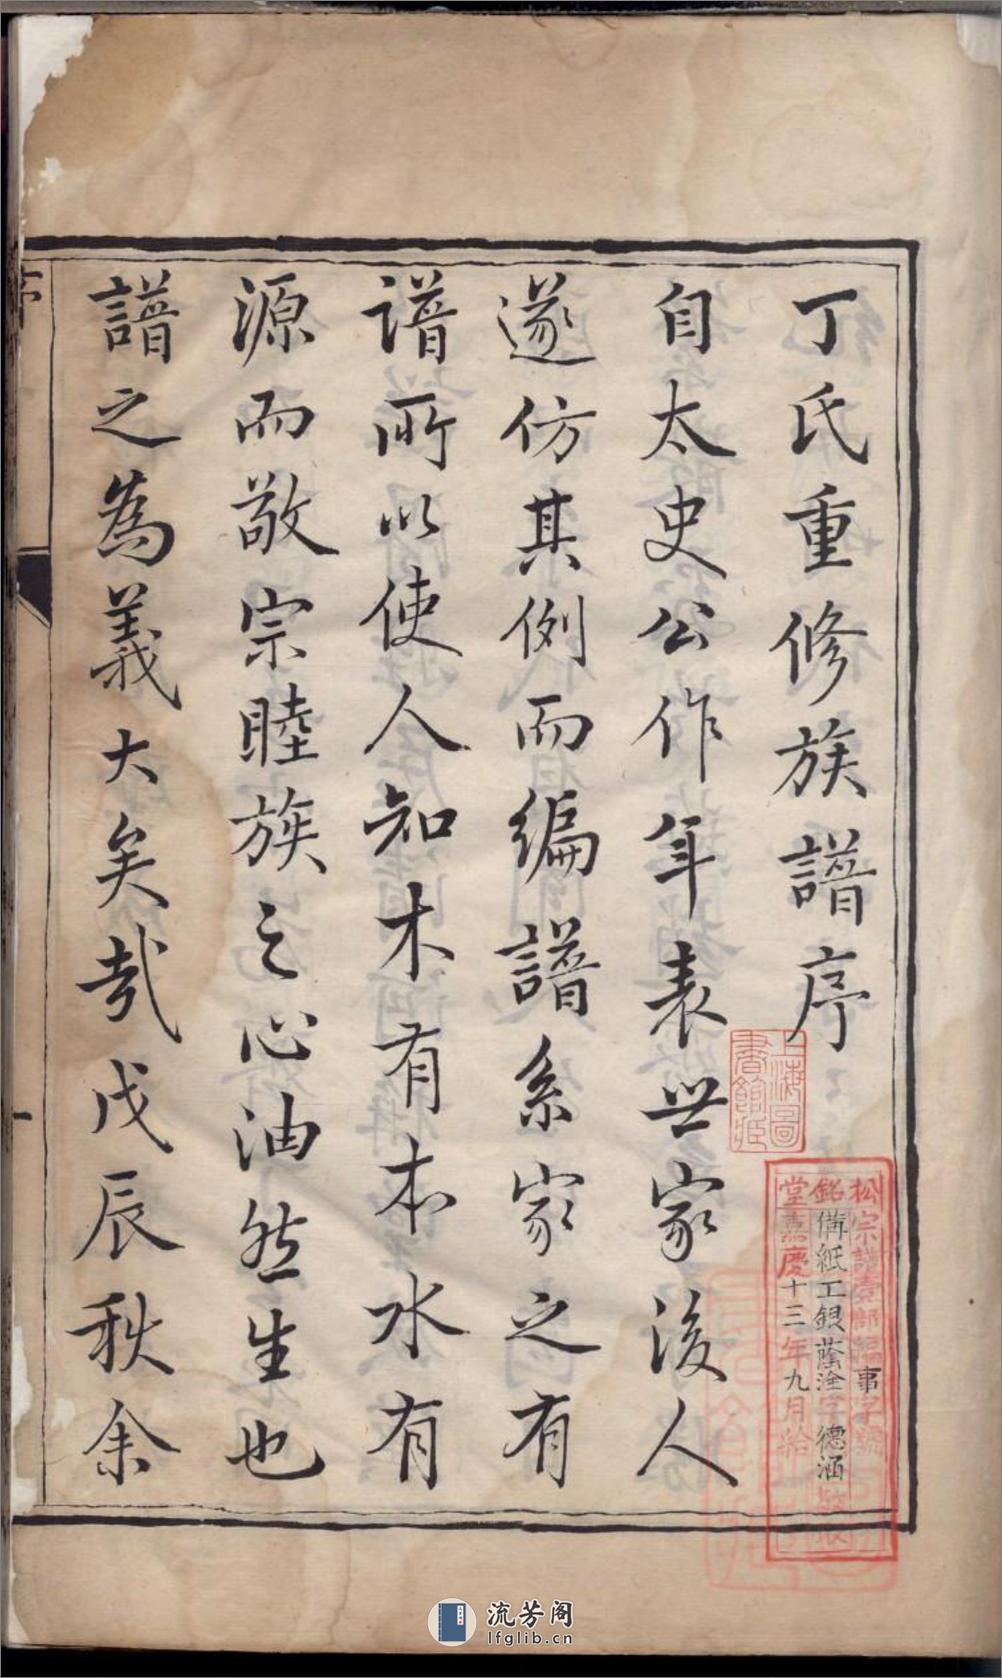 丁氏重修族譜序
自太史公作年表世家後人
遂仿其例而編譜系家之有
譜所以使人知木有本水有
源而敬宗睦族之心油然生也
譜之為義大矣哉戊辰秋余
上海圖
書館藏
松宗譜壹部編事字號
銘備紙工銀蔭淦字德涵
堂嘉慶十三年九月拾
流芳阁
lfglib.cn